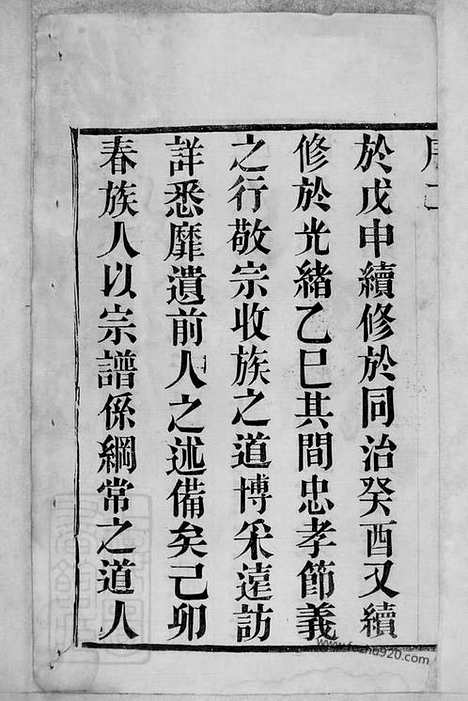 於戊申續修於同治癸酉又續
修於光緒乙巳其間忠孝節義
之行敬宗收族之道博采遠訪
詳悉靡遺前人之述備矣己卯
春族人以宗譜係綱常之道人
www.fozhu920.com